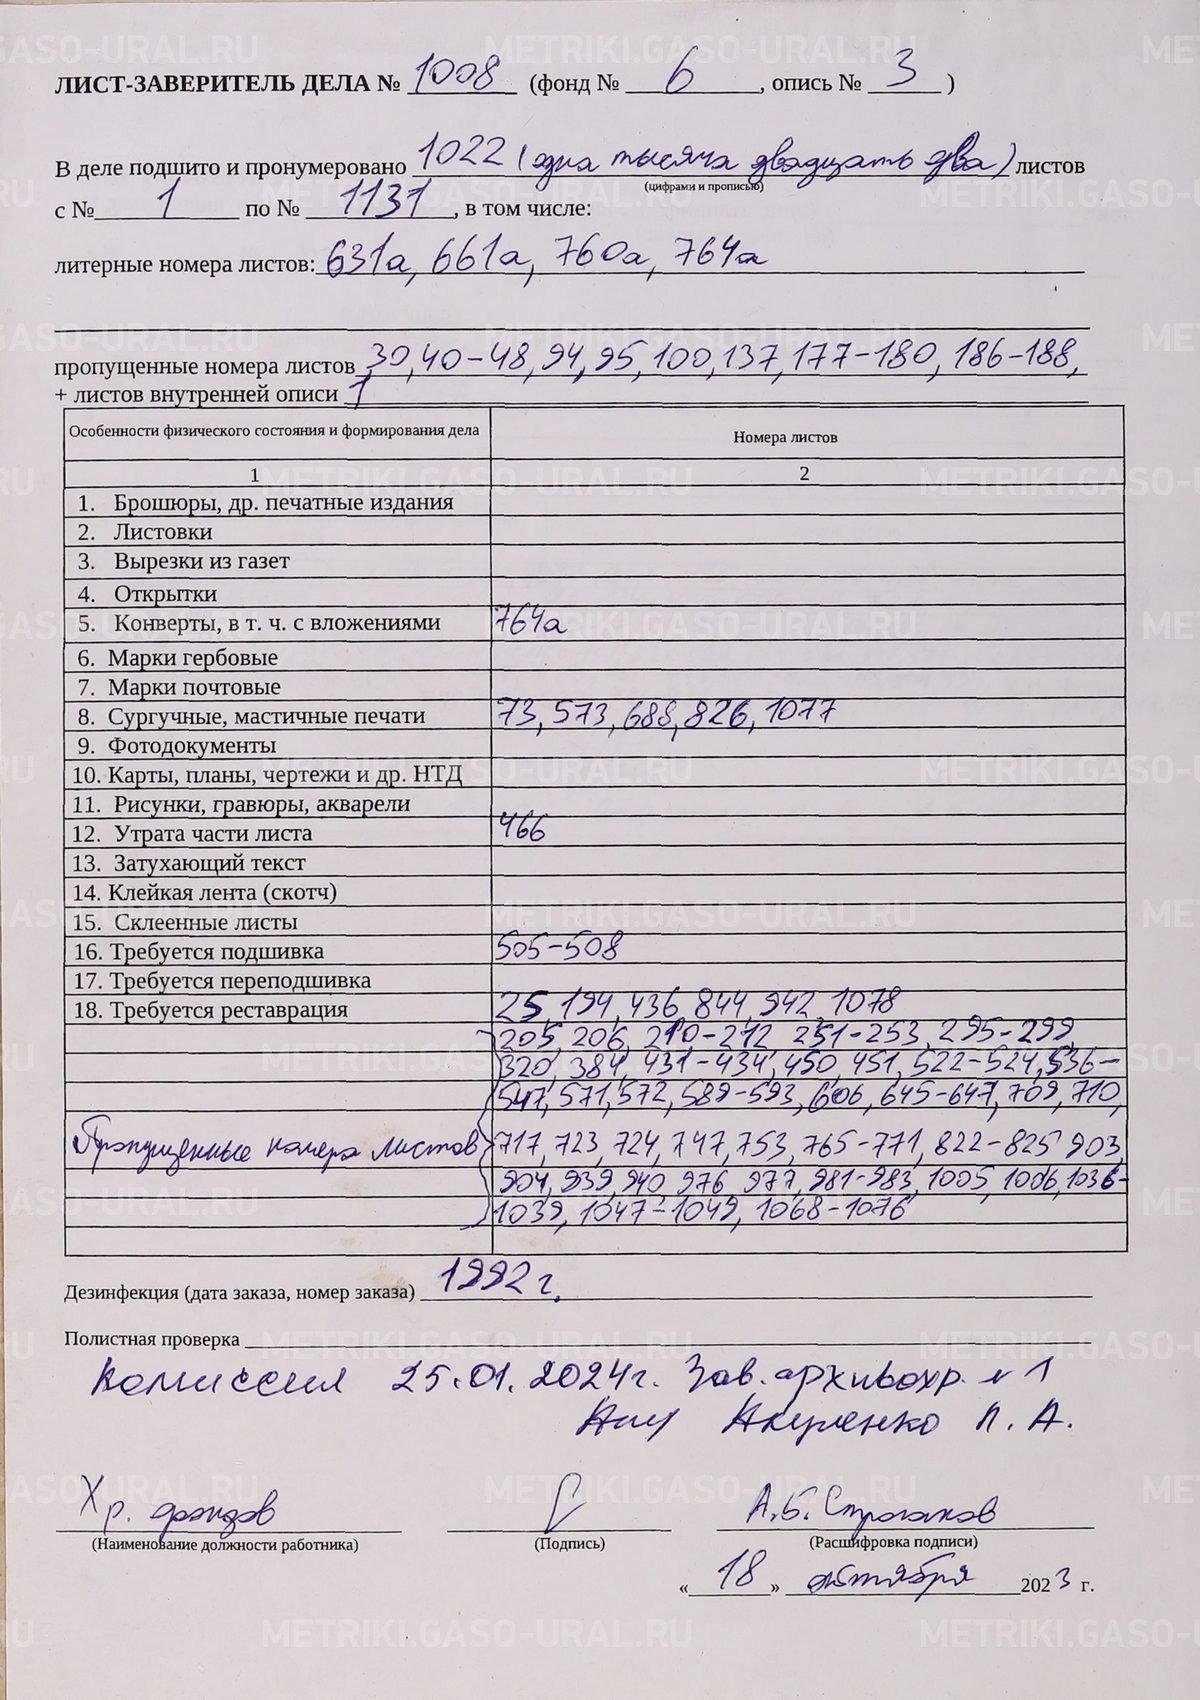 ЛИСТ-ЗАВЕРИТЕЛЬ ДЕЛА № 1008 (фонд № 6, опись № 3)
В деле подшито и пронумеровано 1022 (одна тысяча двадцать два) листов
(цифрами и прописью)
с № 1 по № 1131, в том числе:
литерные номера листов: 631а, 661а, 760а, 764а
пропущенные номера листов 39, 40-48, 94, 95, 100, 137, 177-180, 186-188,
+ листов внутренней описи 1
Особенности физического состояния и формирования дела Номера листов
1 2
1. Брошюры, др. печатные издания
2. Листовки
3. Вырезки из газет
4. Открытки
5. Конверты, в т. ч. с вложениями 764а
6. Марки гербовые
7. Марки почтовые
8. Сургучные, мастичные печати 73, 573, 688, 826, 1077
9. Фотодокументы
10. Карты, планы, чертежи и др. НТД
11. Рисунки, гравюры, акварели
12. Утрата части листа 466
13. Затухающий текст
14. Клейкая лента (скотч)
15. Склеенные листы
16. Требуется подшивка 505-508
17. Требуется переподшивка
18. Требуется реставрация 25, 194, 436, 844, 942, 1078
205, 206, 210-212, 251-253, 295-299,
320, 384, 431-434, 450, 451, 522-524, 536-
547, 571, 572, 589-593, 606, 645-647, 709, 710,
Пропущенные номера листов 717, 723, 724, 747, 753, 765-771, 822-825, 903,
904, 939, 940, 976, 977, 981-983, 1005, 1006, 1036-
1039, 1047-1049, 1068-1076
Дезинфекция (дата заказа, номер заказа) 1992 г.
Полистная проверка
Комиссия 25.01.2024г. Зав. архивохр. № 1
Л. А.
Хр. фондов А.Б.
(Наименование должности работника) (Подпись) (Расшифровка подписи)
« 18 » октября 2023 г.
METRIKI.GASO-URAL.RU